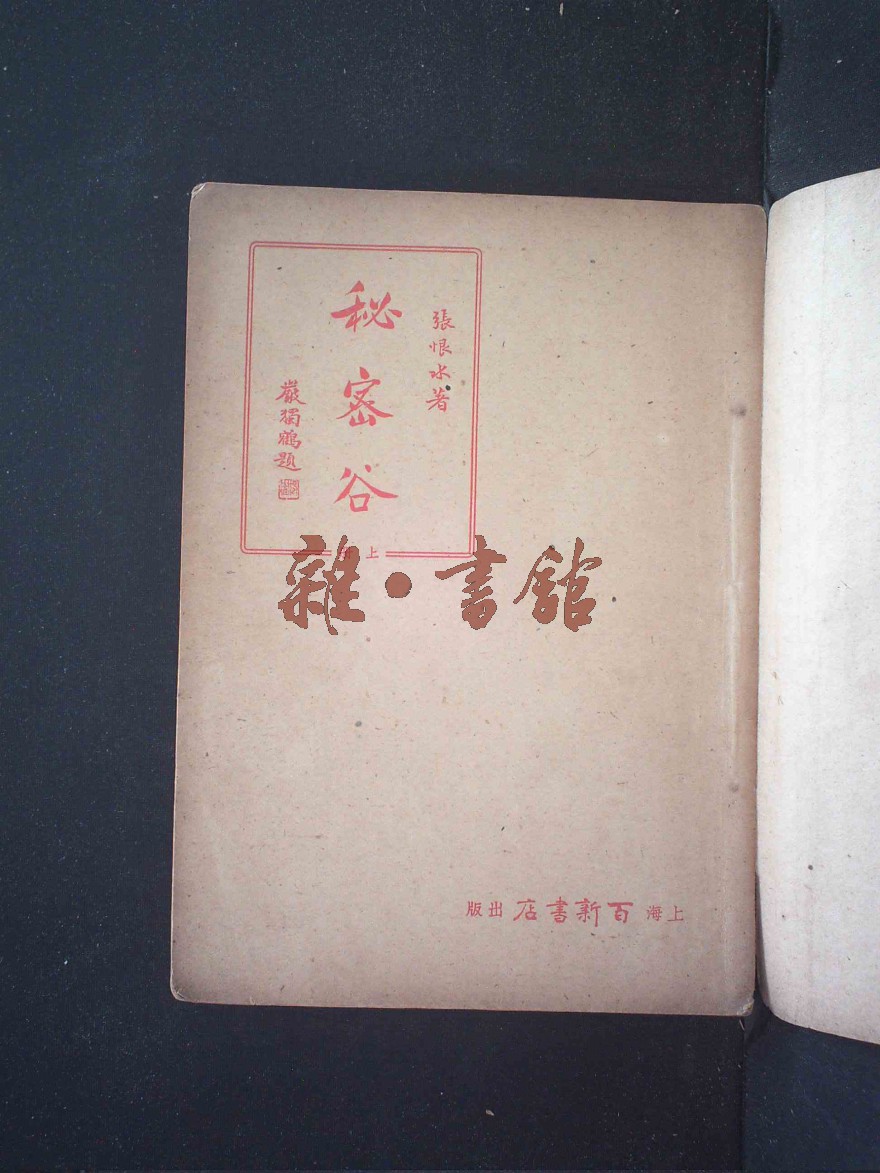 張恨水著
秘密谷
嚴獨鶴題
上
雜·書館
上海百新書店出版